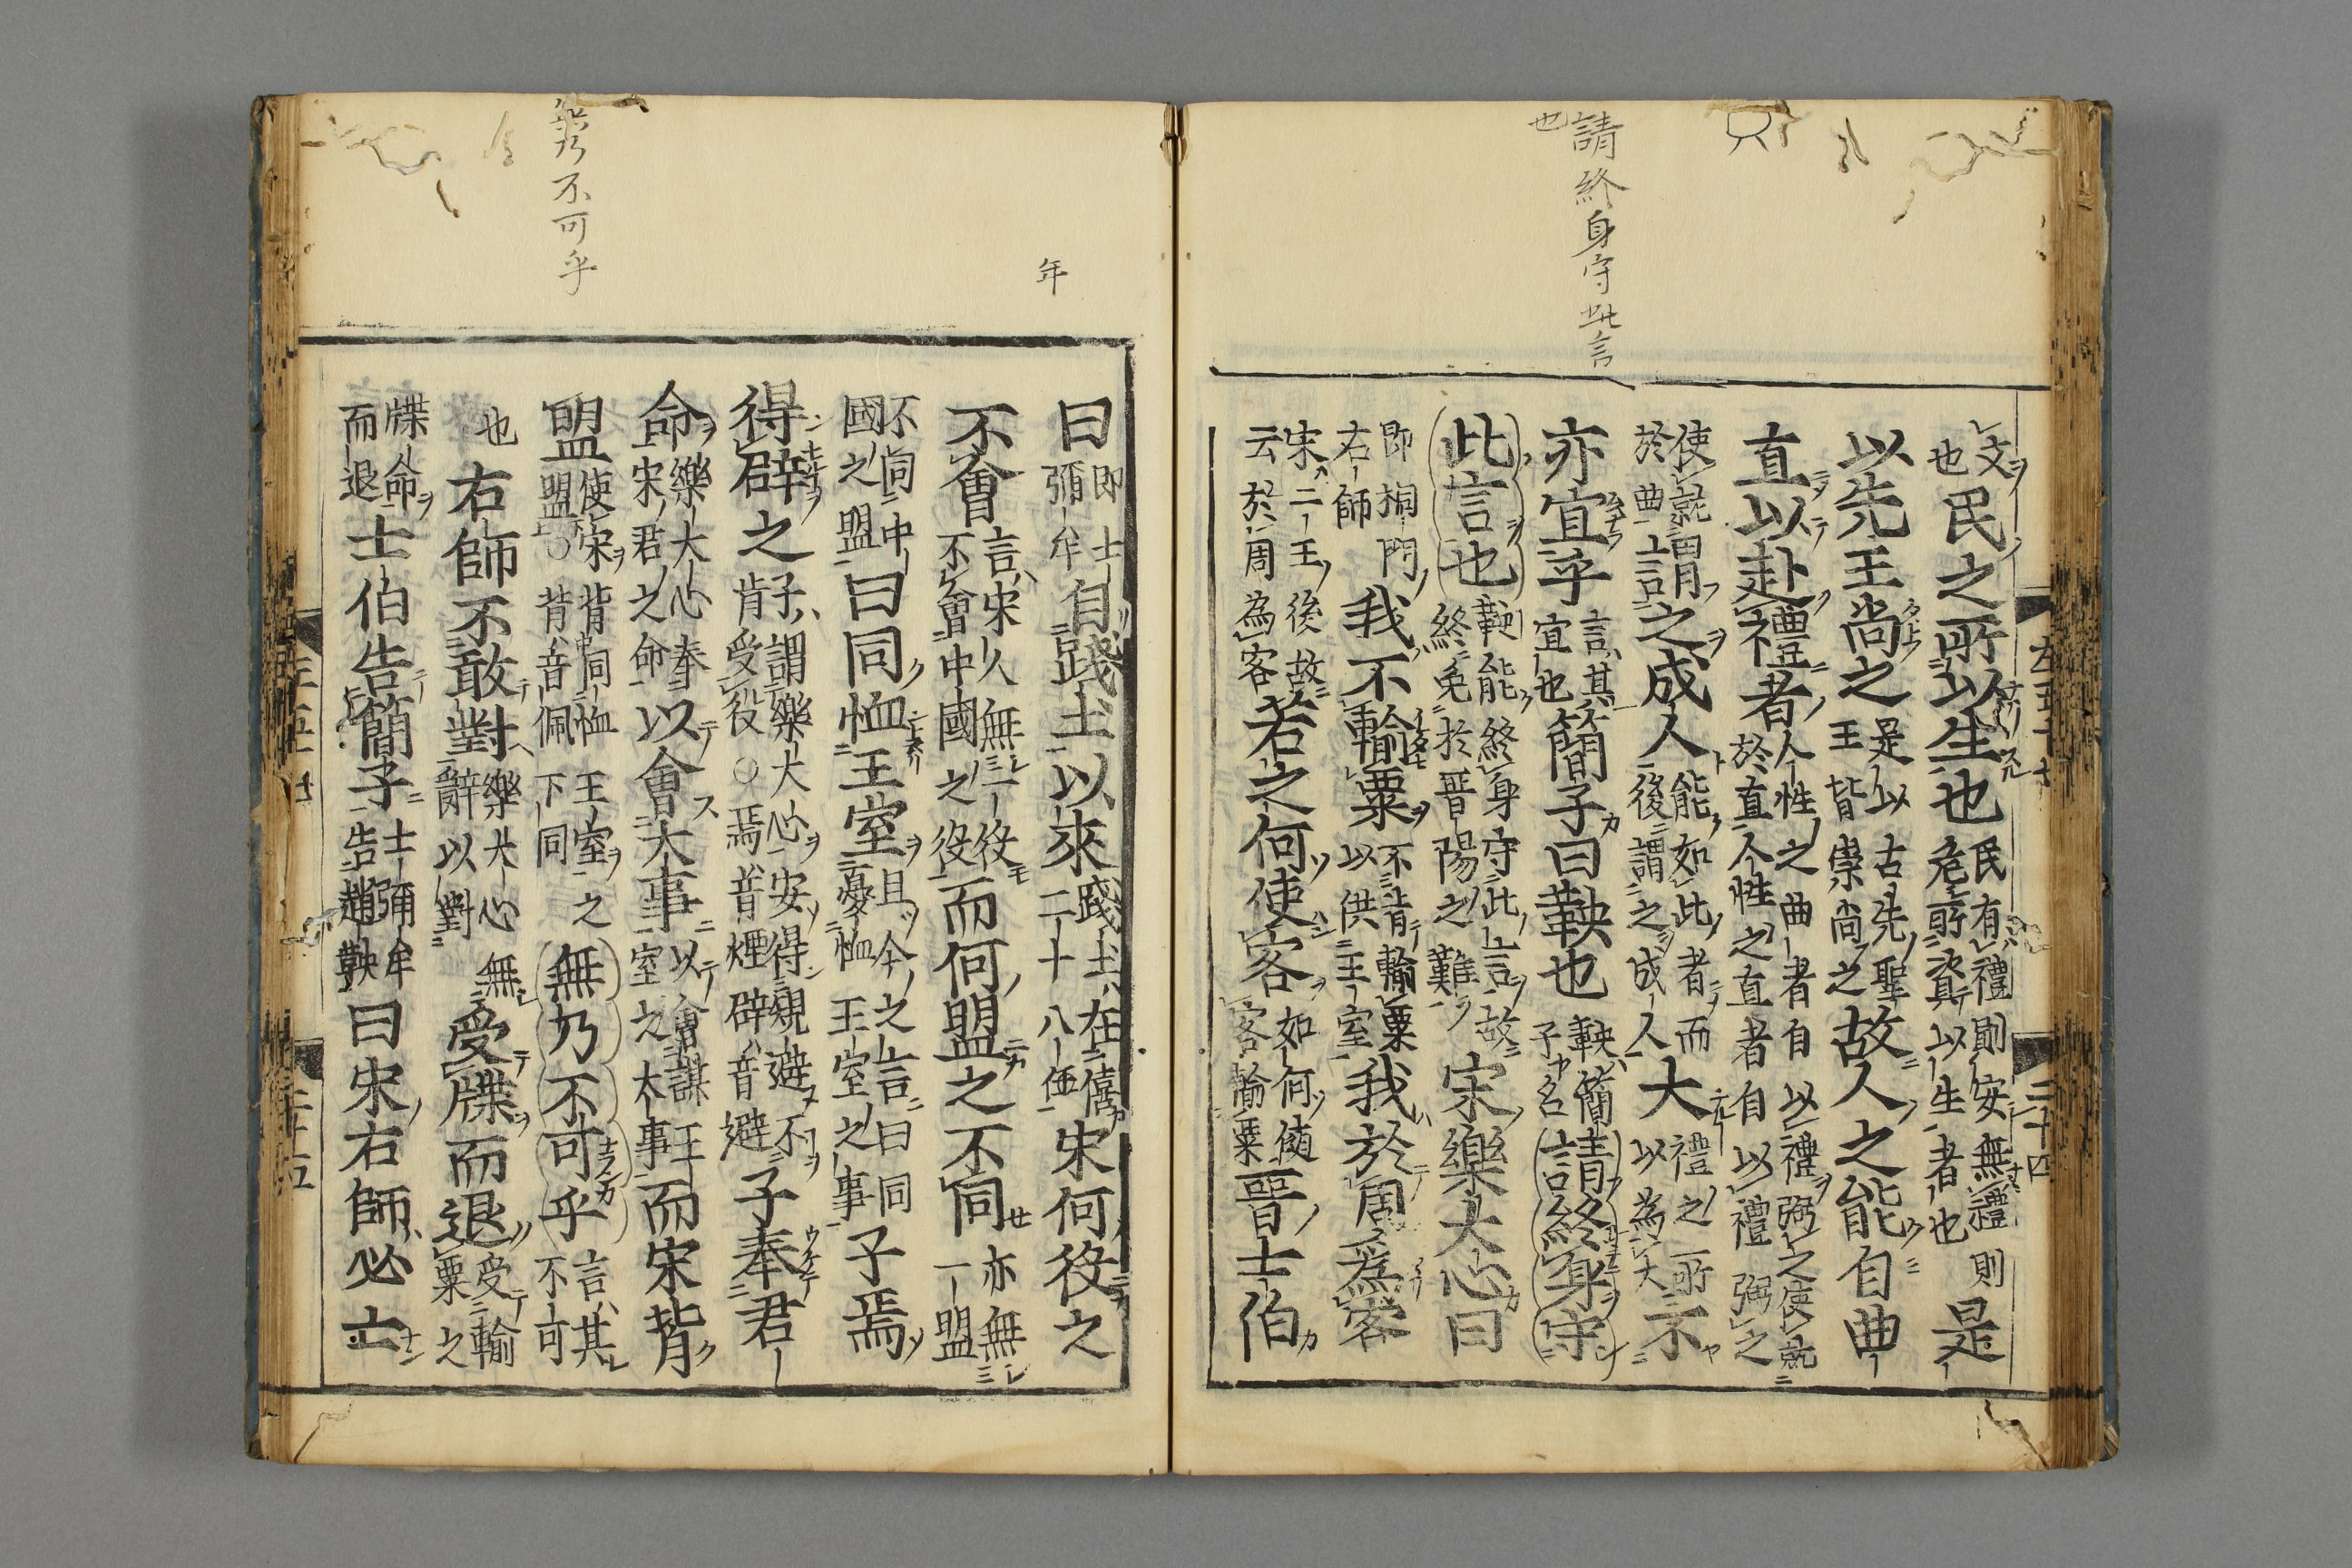 請終身守此言
也
文也民之所以生也民有禮則安無禮則危所資以生者也是
以先王尚之是以古先聖王皆崇尚之故人之能自曲
直以赴禮者人性之曲者自以禮弼之使就於直人性之直者自以禮弼之
使就謂於曲上言之成人能如此者而後謂之成人大禮之所以為大不
亦宜乎言其宜也簡子曰鞅也鞅簡子名請終身守
此言也鞅能終身守此上言故終免於晋陽之難宋樂大心曰
即桐門右師我不輸粟不肯輸粟以供王室我於周爲客
宋二王後故云於周為客若之何使客如何使客輸粟晋士伯
年
無乃不可乎
曰即士彌牟自踐土以來踐土在僖二十八年宋何役之
不會言宋人無一役不會中國之役而何盟之不同亦無一盟
不同中國之盟曰同恤王室且今之上言曰同憂恤王室之事子焉
得辟之子謂樂大心安得規避不肯受役○焉音煙辟音避子奉君
命樂大心奉宋君之命以會大事以會謀王室之大事而宋背
盟使宋背同恤王室之盟○背音佩下同無乃不可乎言其不可
也右師不敢對樂大心無辭以對受牒而退受輸粟之
牒命而退士伯告簡子士彌牟告趙鞅曰宋右師必亡